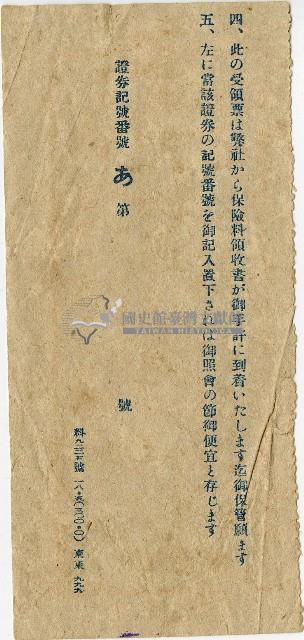 四、此の受領票は弊社から保險料領收書が御手許に到着いたします迄御保管願ます
五、左に當該證券の記號番號を御記入置下されば御照會の節御便宜と存じます
證券記號番號 あ 第 號
國史館臺灣文獻館
TAIWAN HISTORICA